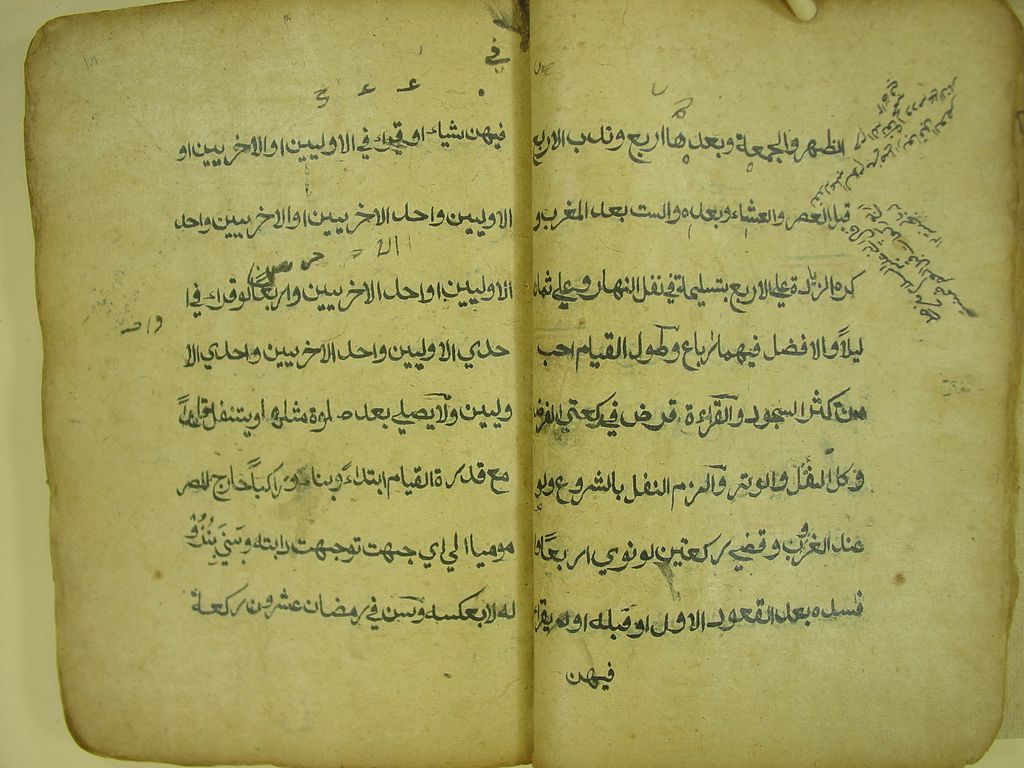 الظهر والجمعة وبعدها اربع وندب الاربع
قبل العصر والعشاء وبعده والست بعد المغرب و
كره الزيادة علي الاربع بتسليمة في نفل النهار وعلي ثمان
ليلاً والافضل فيهما رباع وطول القيام احب
من كثر السجود والقراءة فرض في ركعتي الفرض
وكل النفل والوتر والزم النفل بالشروع ولو
عند الغروب وقضي ركعتين لو نوي اربعاً و
فسده بعد القعود الاول او قبله او لم يقرا
فيهن
في
فيهن شياء او قراء في الاوليين او الاخريين او
الاوليين واحد الاخريين او الاخريين واحد
الاوليين او احد الاخريين واربعاً لو قراء في ا
حدي الاوليين واحد الاخريين واحدي الا
وليين ولا يصلي بعد صلوة مثلها ويتنفل قاعداً
مع قدرة القيام ابتداءً وبناء وراكباً خارج المصر
موميا الي اي جهت توجهت دابته وبني بنزو
له لا بعكسه وسن في رمضان عشرون ركعة
واحد